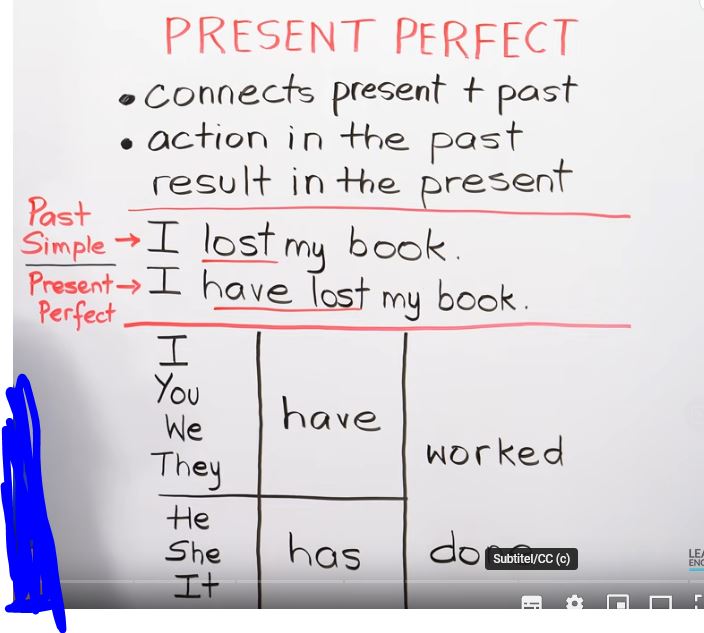 PRESENT PERFECT
• connects present + past
• action in the past
result in the present
Past
Simple → I lost my book.
Present → I have lost my book.
Perfect
I
You
We have
They worked
He
She has
Subtitel/CC (c)
It